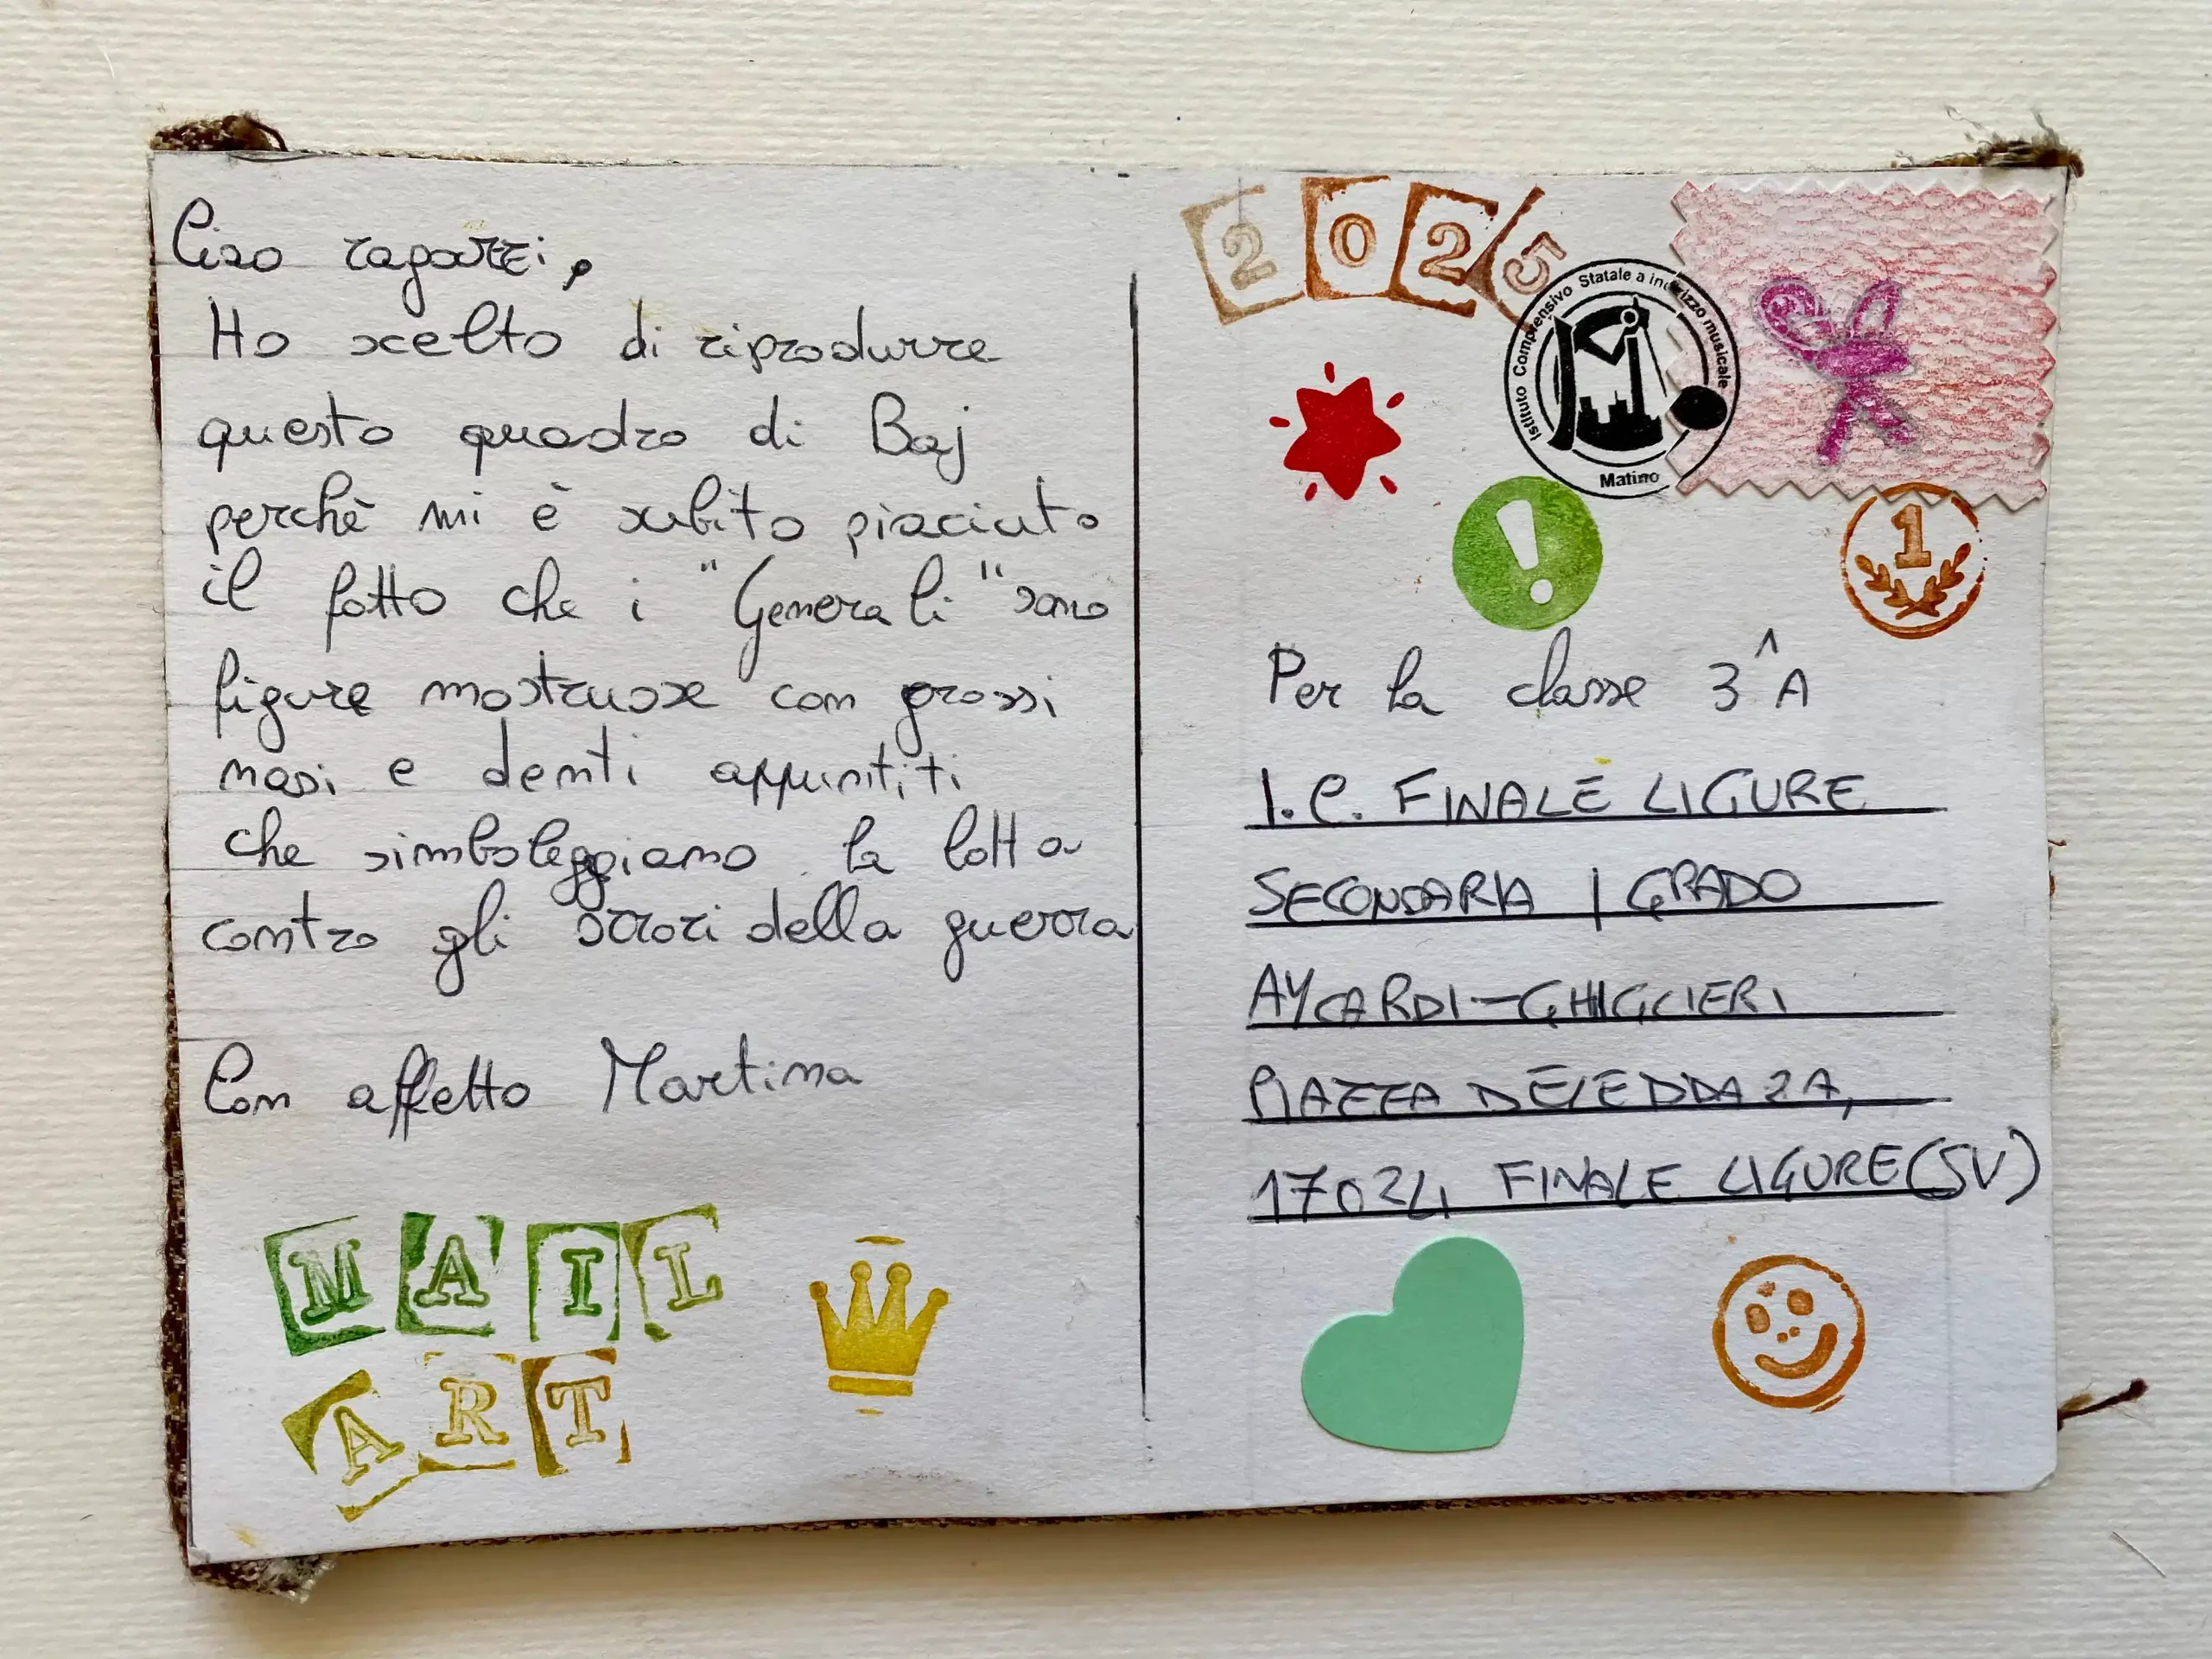 Ciao ragazzi,
Ho scelto di riprodurre
questo quadro di Baj
perchè mi è subito piaciuto
il fatto che i "Generali" sono
figure mostruose con grossi
nasi e denti appuntiti
che simboleggiano la lotta
contro gli orrori della guerra
Con affetto Martina
MAIL
ART
2025
Istituto Comprensivo Statale a indirizzo musicale
Matino
!
1
Per la classe 3^A
I.C. FINALE LIGURE
SECONDARIA I GRADO
AYCARDI-GHIGLIERI
PIAZZA DELEDDA 2A,
17024 FINALE LIGURE (SV)